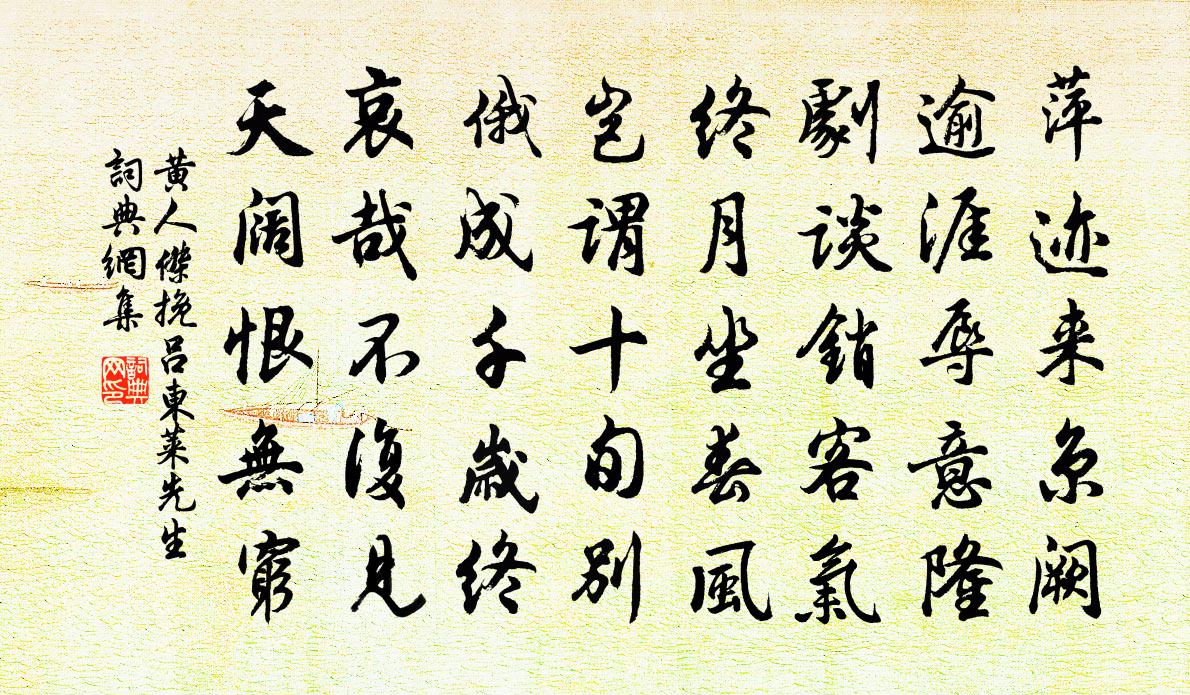 萍迹来京阙
逾涯辱意隆
劇談銷客氣
终月坐春風
岂謂十旬别
俄成千歲终
哀哉不復见
天阔恨無窮
黄人傑挽吕東萊先生
詞典網集
詞典网印